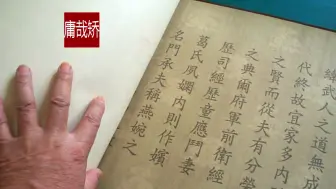 庸哉矫
武之道無成
代終故宜家多內
之賢而從夫有分榮
之典爾府軍前衛經
歷司經歷童應鬥妻
葛氏夙嫻內則作嬪
名門承夫稱燕婉之